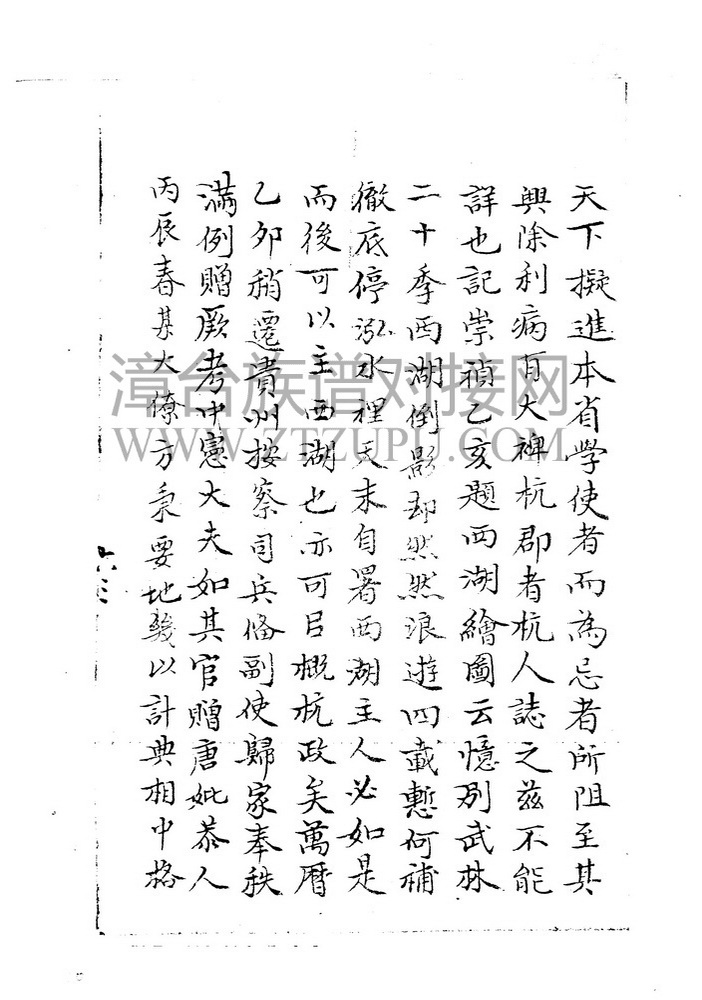 天下擬進本省學使者而為忌者所阻至其
興除利病有大裨杭郡者杭人誌之茲不能
詳也記崇禎乙亥題西湖繪圖云憶別武林
二十季西湖倒影却然然浪遊四載慙何補
徹底停泓水裡天末自署西湖主人必如是
而後可以主西湖也亦可㠯概杭政矣萬曆
乙卯稍遷貴州按察司兵俻副使歸家奉秩
滿例贈厥考中憲大夫如其官贈唐妣恭人
丙辰春某大僚方秉要地幾以計典相中格
漳台族谱对接网
WWW.ZTZUPU.COM